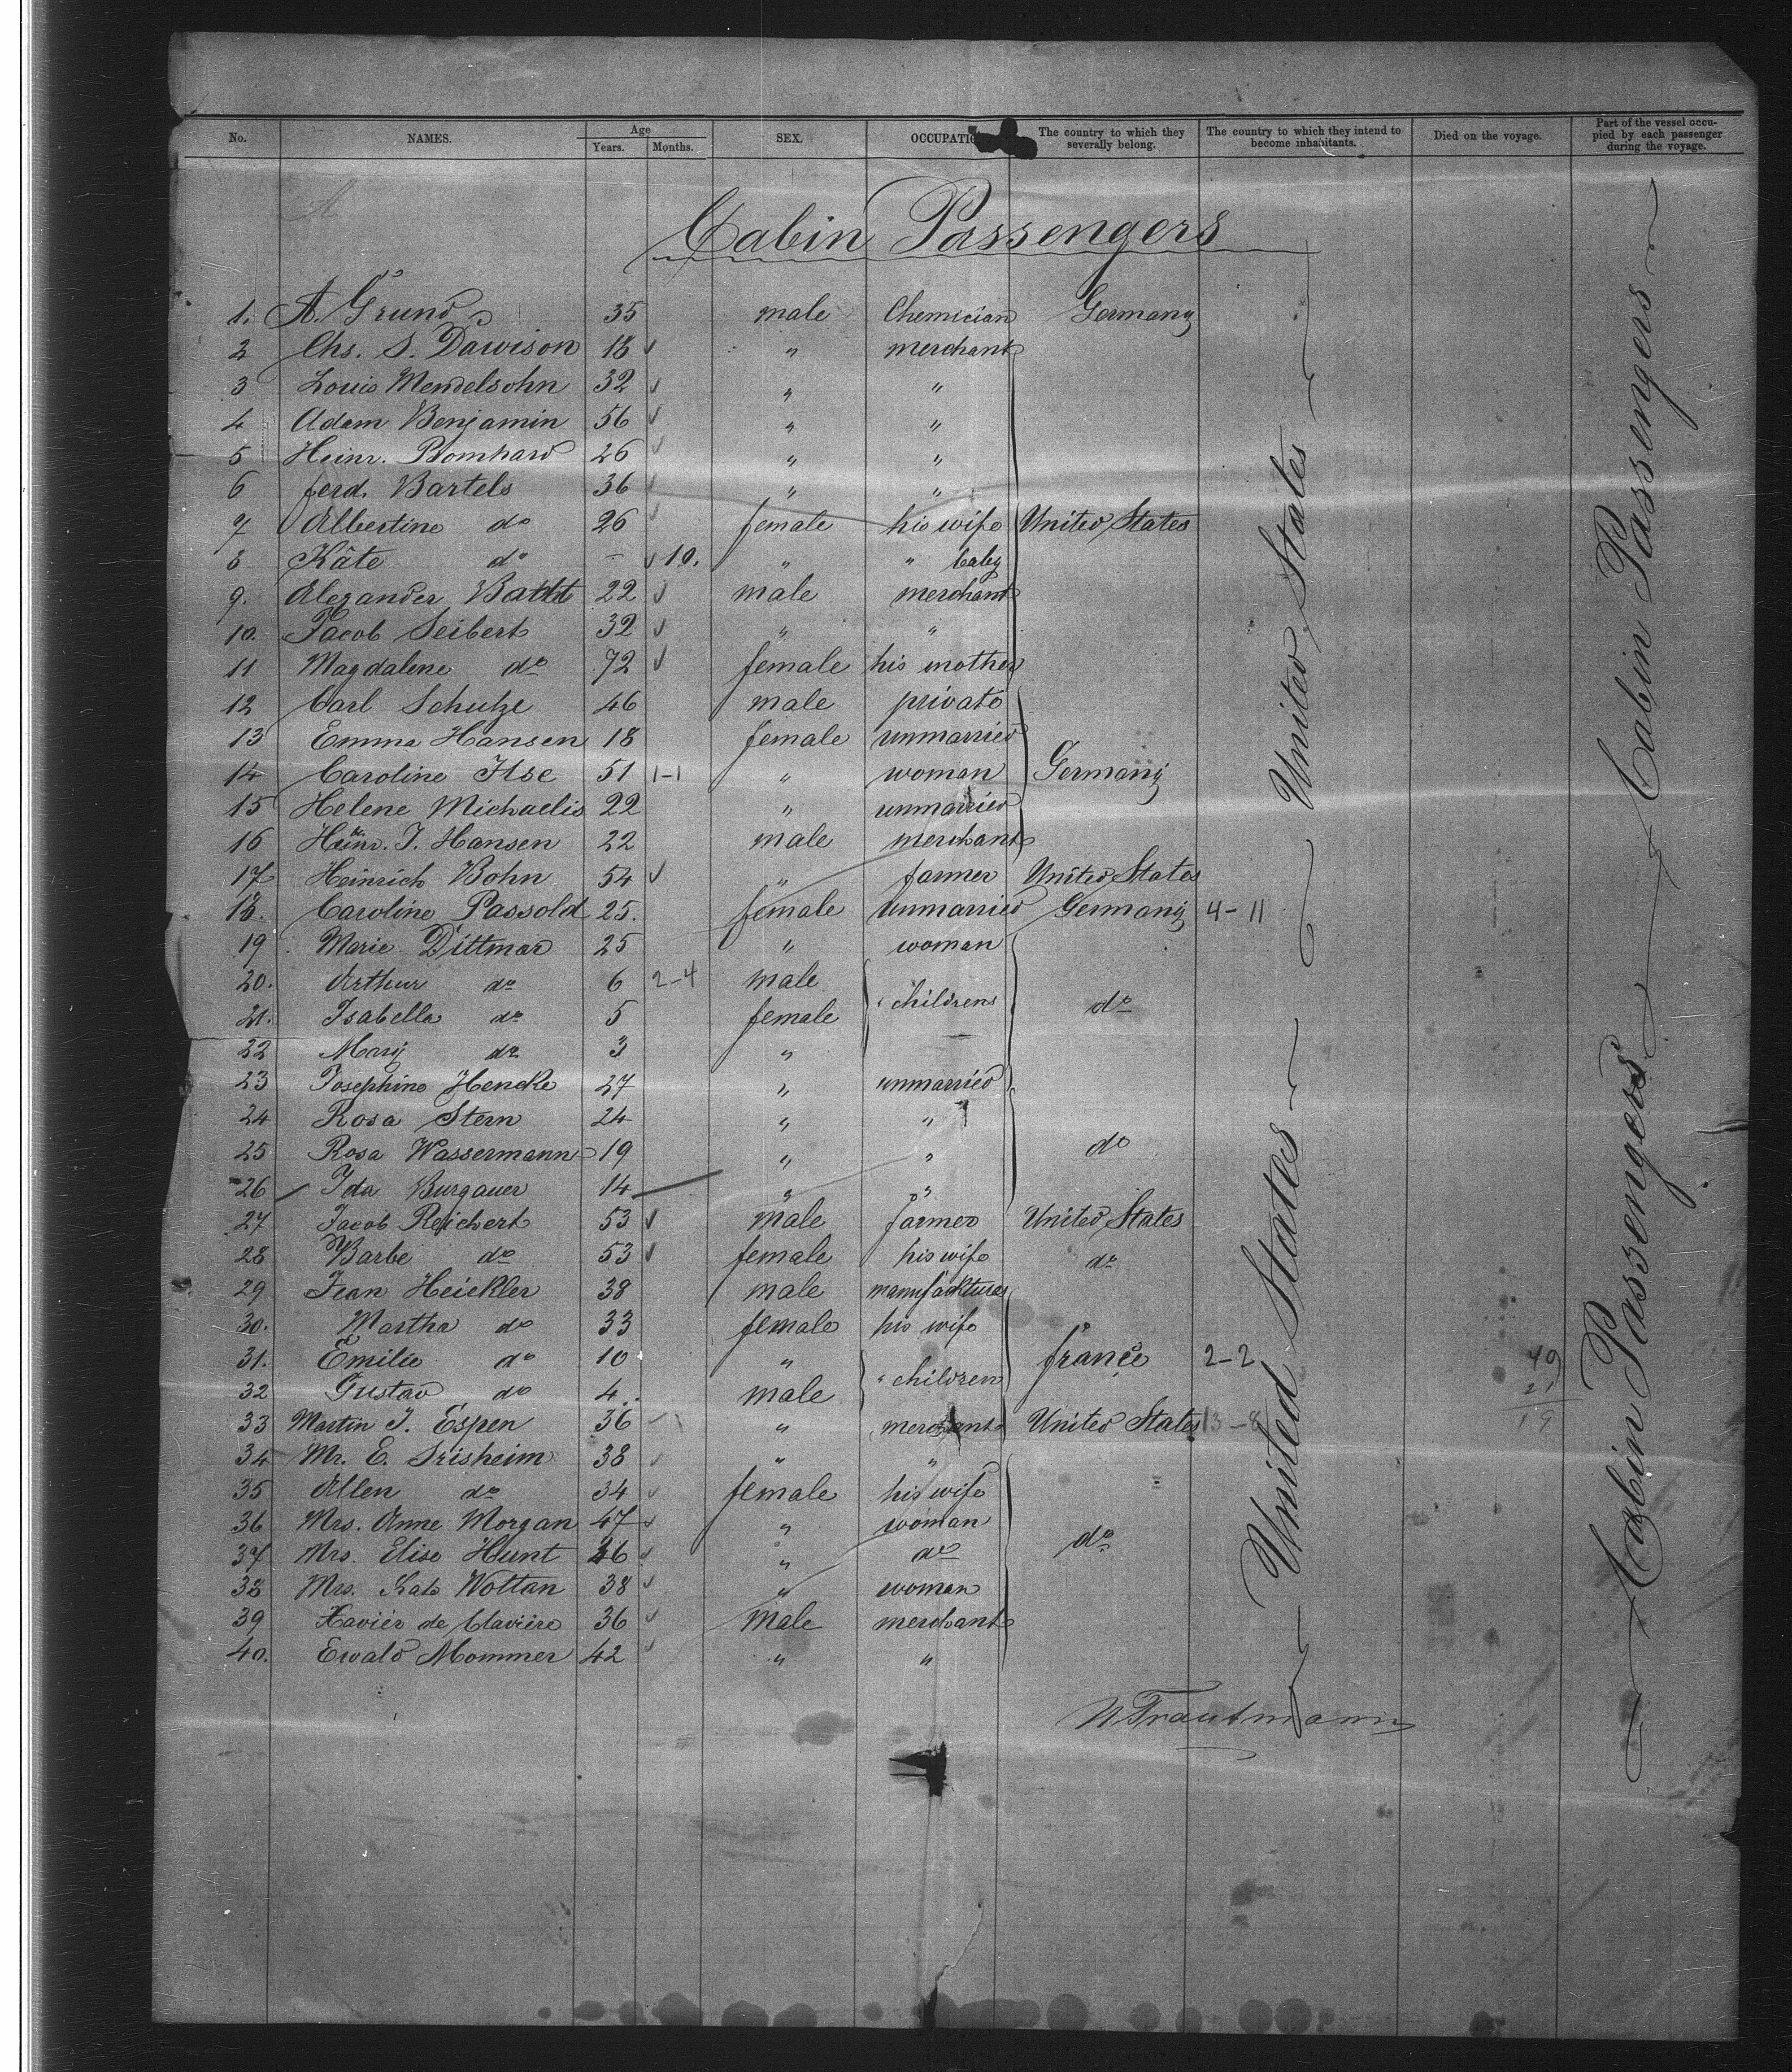 No. NAMES. Age Years. Months. SEX. OCCUPATIO The country to which they severally belong. The country to which they intend to become inhabitants. Died on the voyage. Part of the vessel occupied by each passenger during the voyage.
Cabin Passengers
1. A. Grund 35 male Chemician Germany
2 Chs. S. Dawison 18 " merchant
3 Louis Mendelsohn 32 " "
4 Adam Benjamin 56 " "
5 Heinr. Bomhard 26 " "
6 ferd. Bartels 36 " "
7 Albertine do 26 female his wife United States
8 Käte do - 10. " " baby
9. Alexander 22 male merchant
10. Jacob Seibert 32 " "
11 Magdalene do 72 female his mother
12 Carl Schulze 46 male private
13 Emma Hansen 18 female unmarried
14 Caroline Ilse 51 1-1 " woman Germany
15 Helene Michaelis 22 " unmarried
16 Heinr. J. Hansen 22 male merchant
17 Heinrich Bohn 54 " farmer United States
18. Caroline Passold 25. female unmarried Germany 4-11
19 Marie Dittmar 25 " woman
20. Arthur do 6 2-4 male
21. Isabella do 5 female children do
22 Mary do 3 "
23 Josephine Hencke 27 " unmarried
24 Rosa Stern 24 " "
25 Rosa Wassermann 19 " " do
26 Ida Burgauer 14 " "
27 Jacob Reichert 53 male farmer United States
28 Barbe do 53 female his wife do
29 Jean Heickler 38 male manufackturer
30. Martha do 33 female his wife
31. Emilie do 10 " children france 2-2
32 Gustav do 4. male
33 Martin J. Espen 36 " merchant United States 13-8
34 Mr. E. Srisheim 38 " "
35 Allen do 34 female his wife
36 Mrs. Anne Morgan 47 " woman
37 Mrs. Elise Hunt 36 " do do
38 Mrs. Kate Wottan 38 " woman
39 Xaviér de Clavière 36 male merchant
40. Ewald Mommer 42 " "
United States United States United States
Cabin Passengers Cabin Passengers
49
21
19
Trautmann